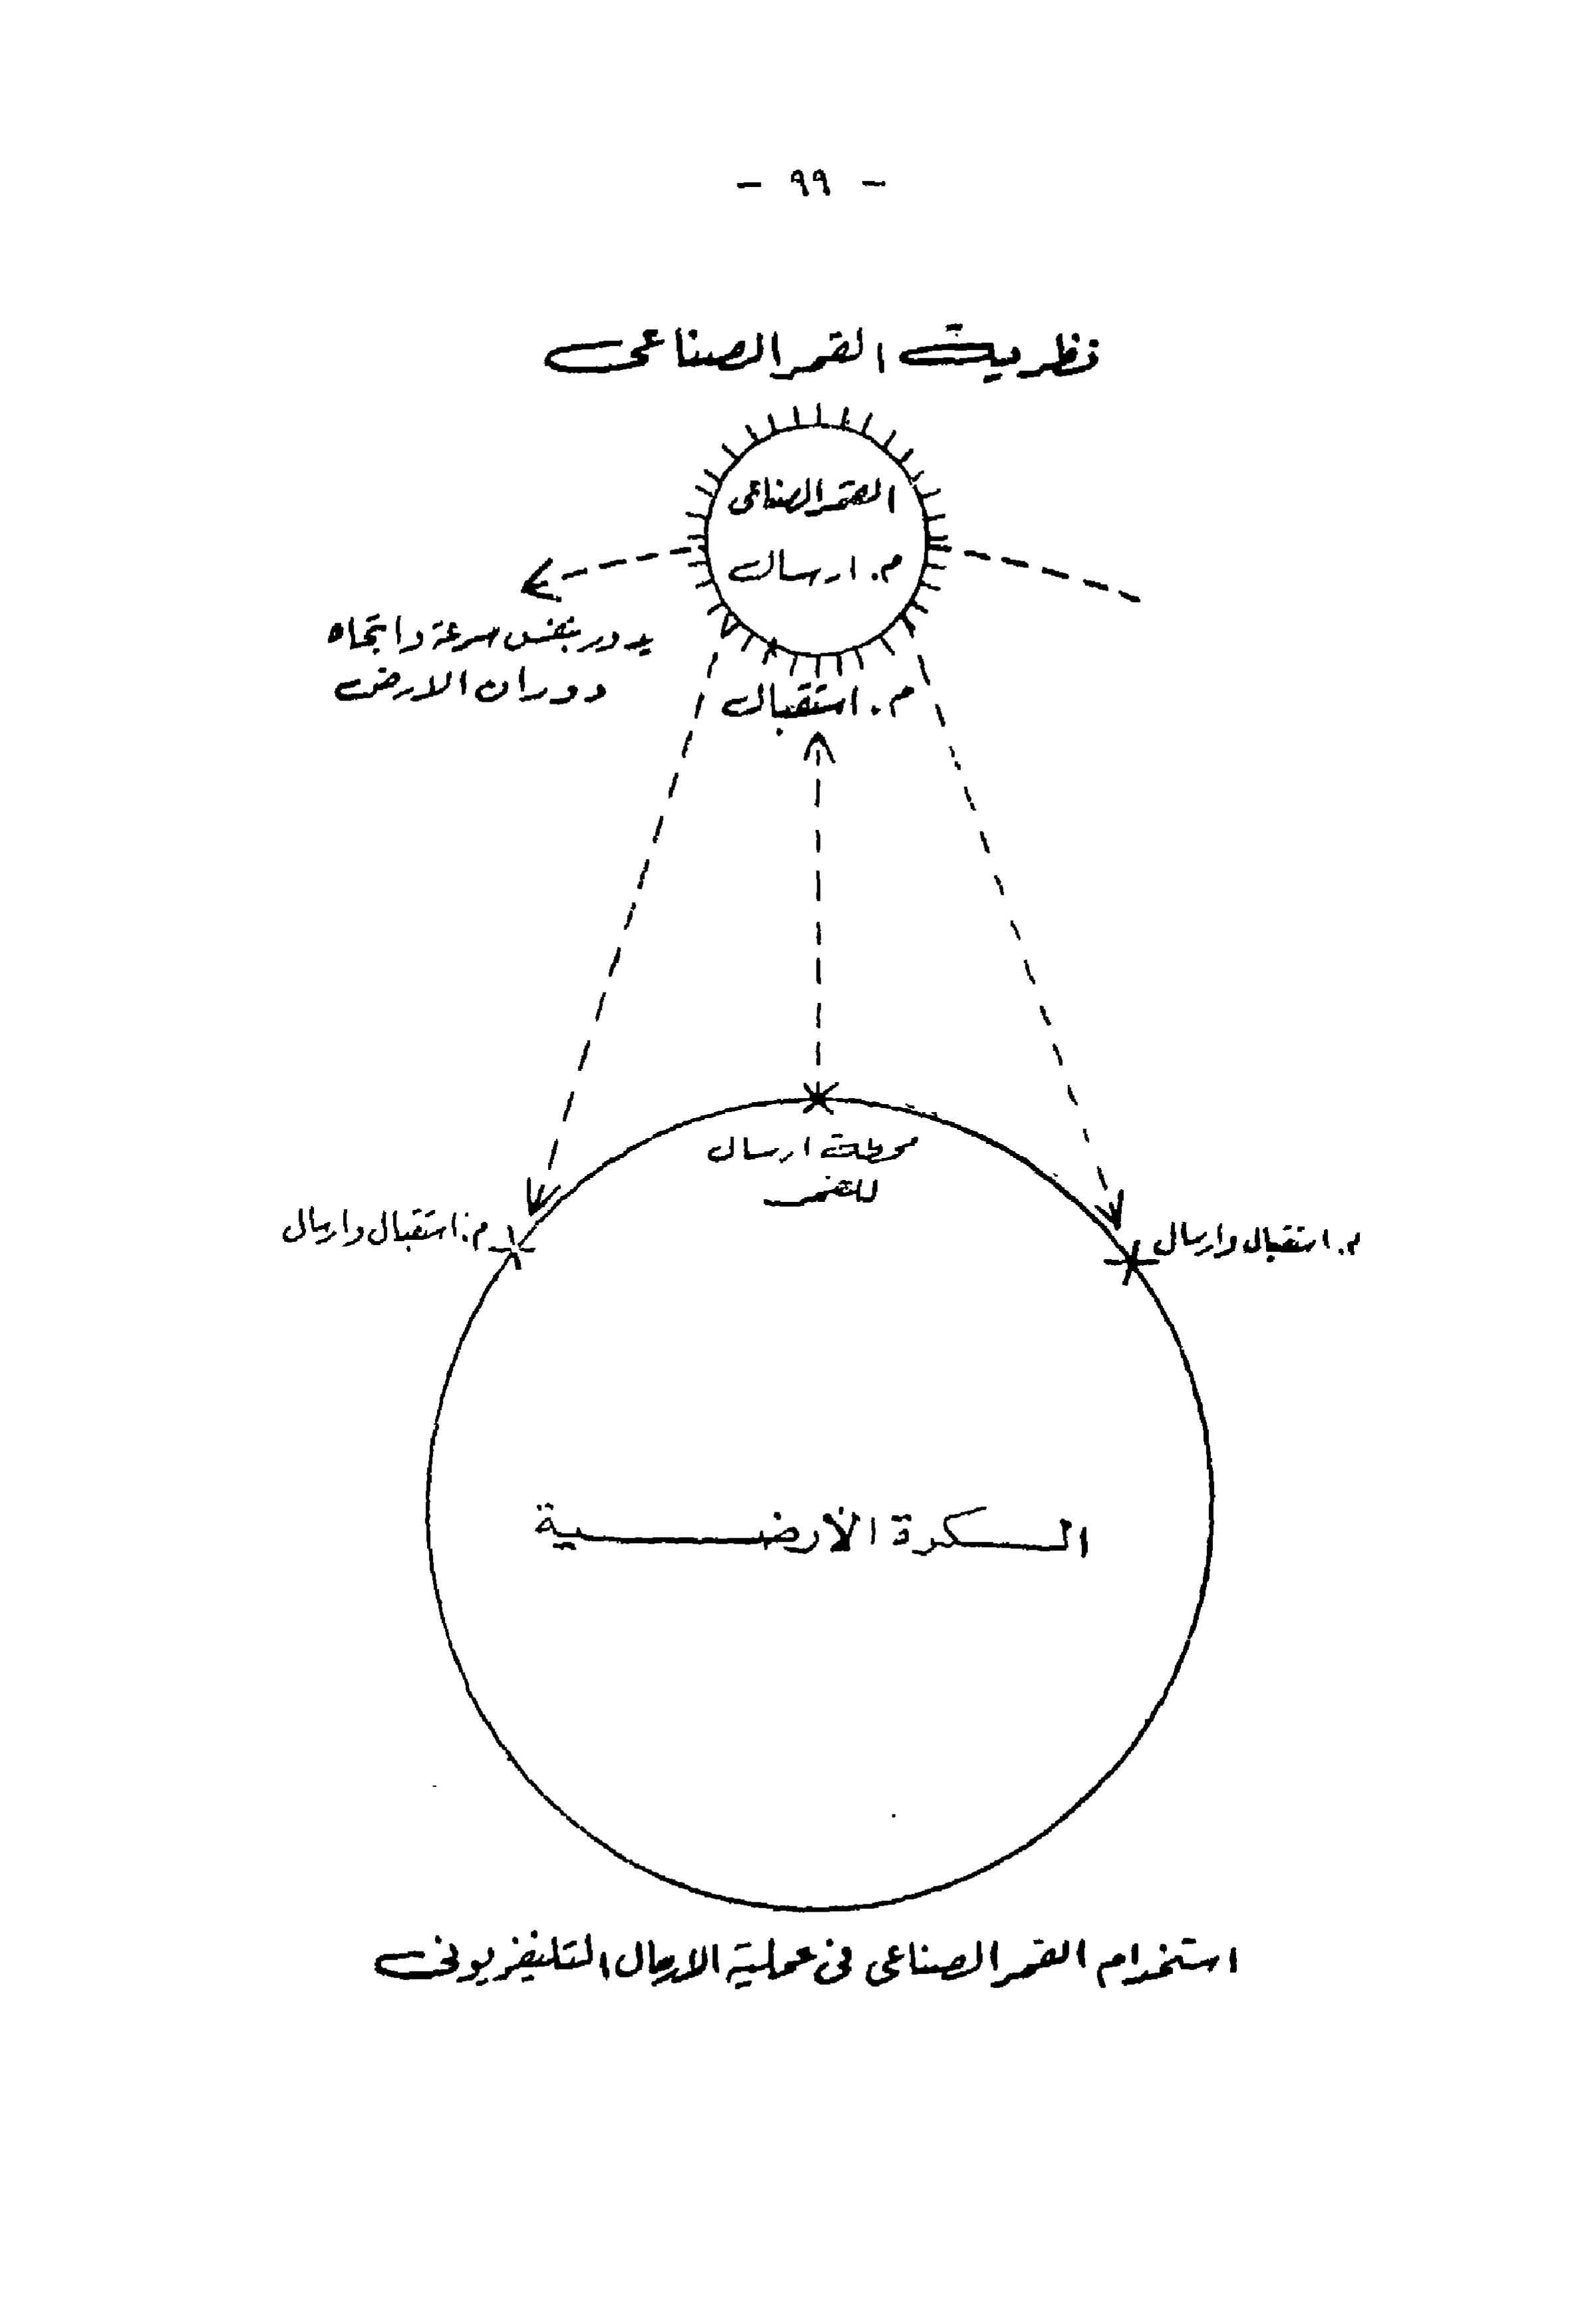 - ٩٩ -
نظرية القمر الصناعى
القمر الصناعى
م. ارسال
يدور بنفس سرعة واتجاه
دوران الارض
م. استقبال
محطة ارسال
للقمر
م. استقبال وارسال
م. استقبال وارسال
الكرة الأرضية
استخدام القمر الصناعى فى عملية الارسال التليفزيونى